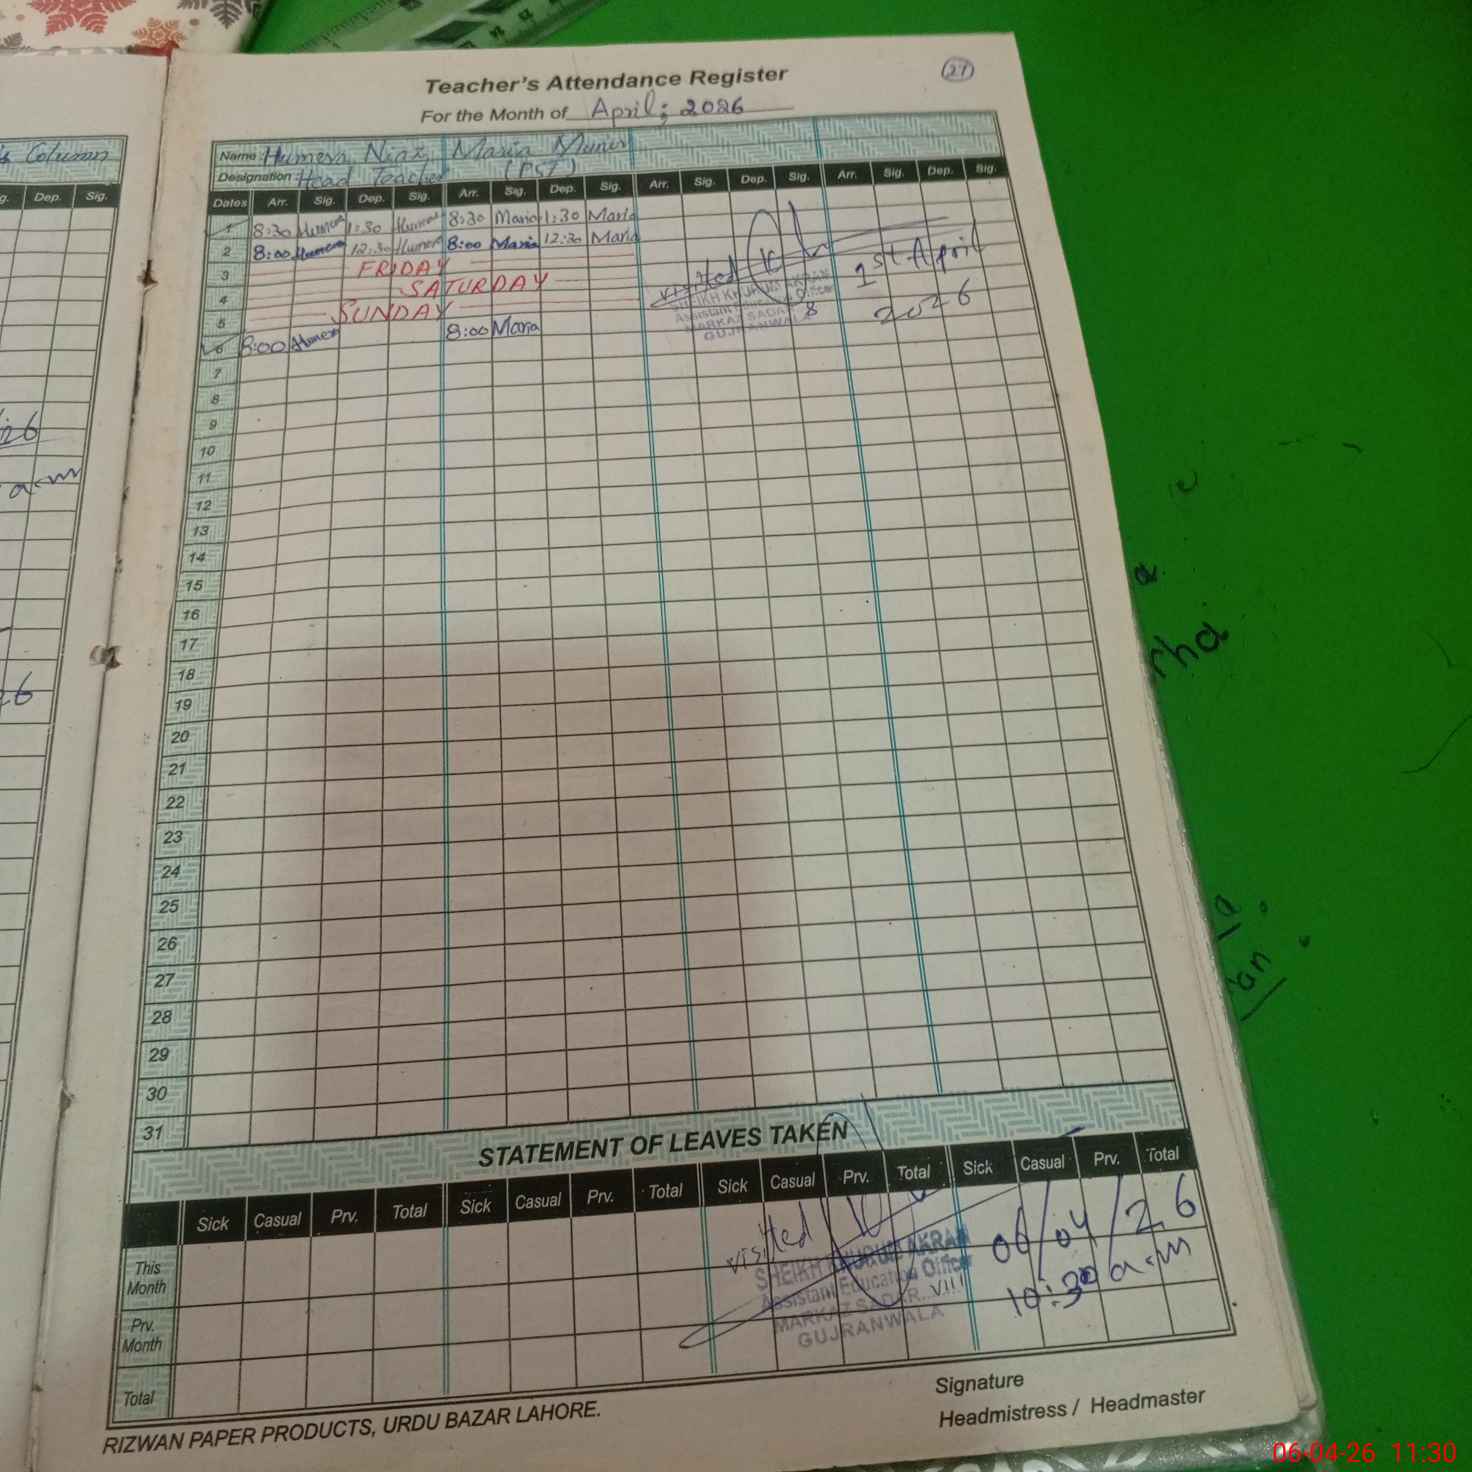 Teacher's Attendance Register
27
For the Month of April; 2026
Name: Humera Niaz Maria Munir
Designation: Head Teacher (PST)
Dates Arr. Sig. Dep. Sig. Arr. Sig. Dep. Sig. Arr. Sig. Dep. Sig. Arr. Sig. Dep. Sig.
1 8:30 Humera 1:30 Humera 8:30 Maria 1:30 Maria
2 8:00 Humera 12:30 Humera 8:00 Maria 12:30 Maria
3 FRIDAY
4 SATURDAY
5 SUNDAY
6 8:00 Humera 8:00 Maria
visited
1st April
2026
Assistant Education Officer
MARKAZ SADAR 8
GUJRANWALA
7
8
9
10
11
12
13
14
15
16
17
18
19
20
21
22
23
24
25
26
27
28
29
30
31
STATEMENT OF LEAVES TAKEN
Sick Casual Prv. Total Sick Casual Prv. Total Sick Casual Prv. Total Sick Casual Prv. Total
This Month
Prv. Month
Total
visited
SHEIKH KHURUM AKRAM
Assistant Education Officer
MARKAZ SADAR. VIII
GUJRANWALA
06/04/26
10:30 a.m
Signature
Headmistress / Headmaster
RIZWAN PAPER PRODUCTS, URDU BAZAR LAHORE.
's Column
Dep. Sig.
26
a.m
26
rha
an
06-04-26 11:30